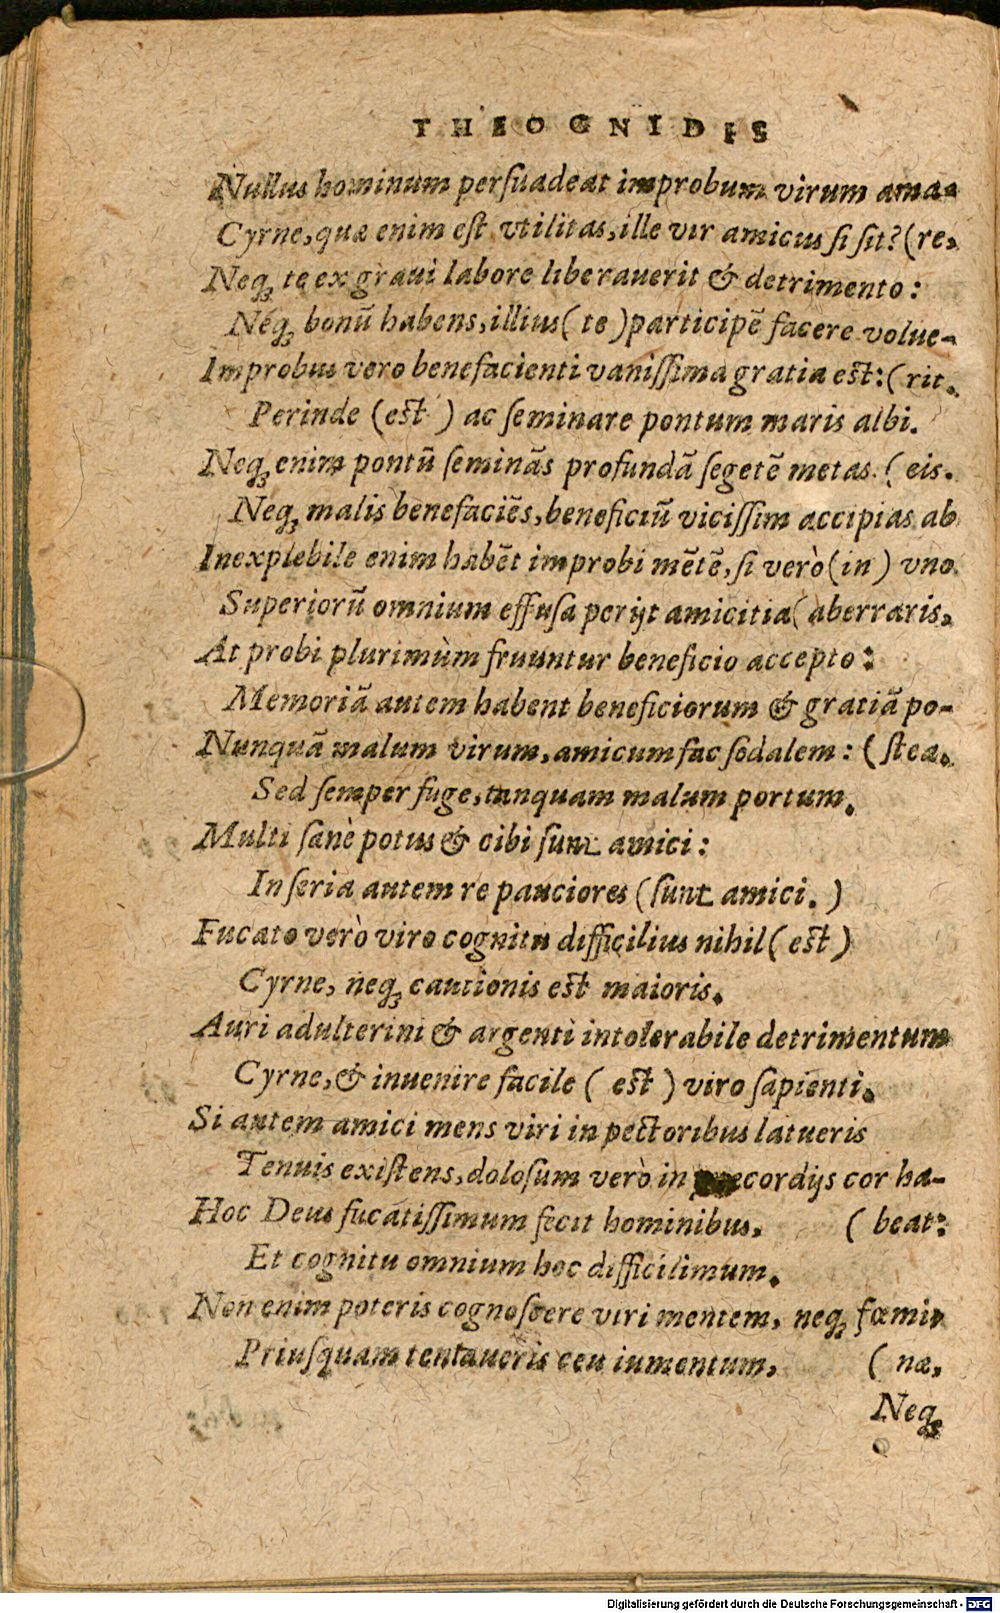 THEOGNIDIS
Nullus hominum persuadeat improbum virum ama-
Cyrne, quæ enim est vtilitas, ille vir amicus si sit? (re,
Neq; te ex graui labore liberauerit & detrimento:
Néq; bonū habens, illius ( te ) participē facere volue-
Improbus vero benefacienti vanissima gratia est: ( rit.
Perinde (est ) ac seminare pontum maris albi.
Neq; enim pontū seminās profundā segetē metas. ( eis.
Neq; malis benefaciēs, beneficiū vicissim accipias ab
Inexplebile enim habēt improbi mētē, si verò (in ) vno
Superiorū omnium effusa perijt amicitia ( aberraris,
At probi plurimùm fruuntur beneficio accepto:
Memoriā autem habent beneficiorum & gratiā po-
Nunquā malum virum, amicum fac sodalem: ( stea.
Sed semper fuge, tanquam malum portum.
Multi sanè potus & cibi sunt amici:
In seria autem re pauciores (sunt amici. )
Fucato verò viro cognitu difficilius nihil ( est )
Cyrne, neq; cautionis est maioris.
Auri adulterini & argenti intolerabile detrimentum
Cyrne, & inuenire facile ( est ) viro sapienti.
Si autem amici mens viri in pectoribus latueris
Tenuis existens, dolosum verò in præcordijs cor ha-
Hoc Deus fucatissimum fecit hominibus, ( beat:
Et cognitu omnium hoc difficilimum.
Non enim poteris cognoscere viri mentem, neq; fœmi-
Priusquam tentaueris ceu iumentum, ( næ,
Neq;
Digitalisierung gefördert durch die Deutsche Forschungsgemeinschaft - DFG